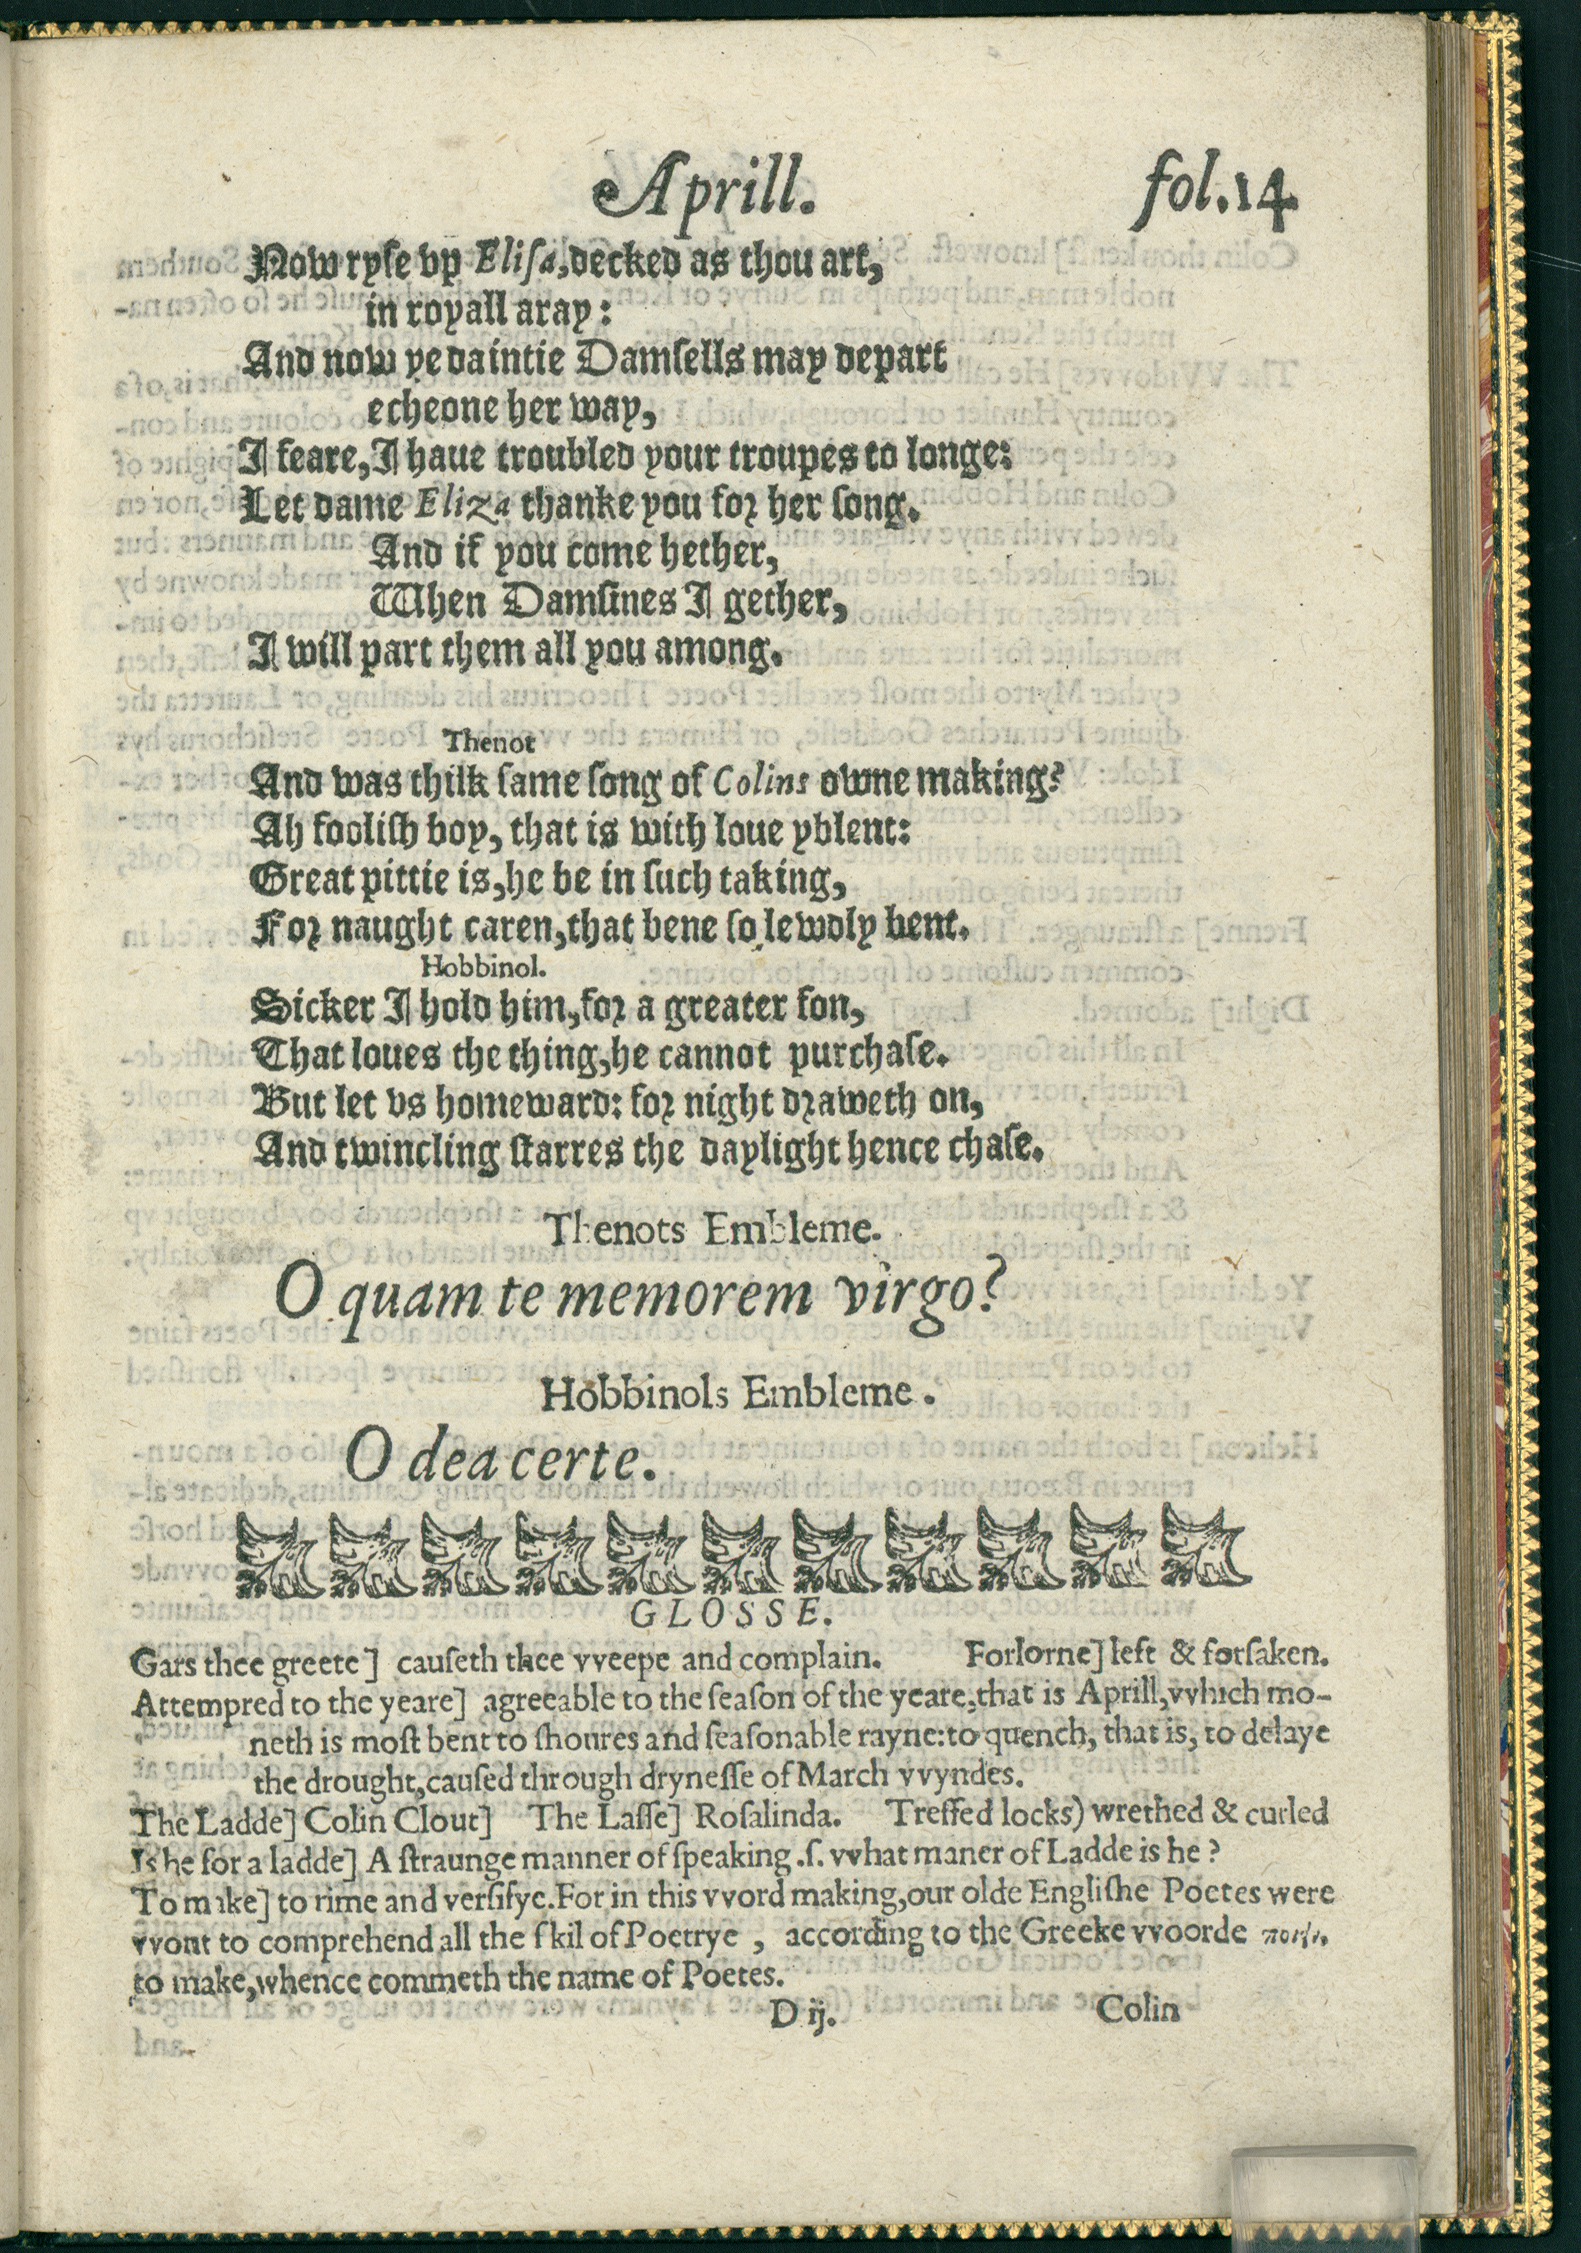 Aprill. fol.14.
Now ryſe vp Eliſa, decked as thou art,
in royall aray:
And now ye daintie Damſells may depart
echeone her way,
I feare, I haue troubled your troupes to longe:
Let dame Eliza thanke you for her ſong.
And if you come hether,
When Damſines I gether,
I will part them all you among.
Thenot
And was thilk ſame ſong of Colins owne making?
Ah fooliſh boy, that is with loue yblent:
Great pittie is, he be in ſuch taking,
For naught caren, that bene ſo lewdly bent.
Hobbinol.
Sicker I hold him, for a greater fon,
That loues the thing, he cannot purchaſe.
But let vs homeward: for night draweth on,
And twincling ſtarres the daylight hence chaſe.
Thenots Embleme.
O quam te memorem virgo?
Hobbinols Embleme.
O dea certe.
GLOSSE.
Gars thee greete] cauſeth thee vveepe and complain. Forlorne] left & forſaken.
Attempred to the yeare] agreeable to the ſeaſon of the yeare, that is Aprill, vvhich mo-
neth is moſt bent to ſhoures and ſeaſonable rayne: to quench, that is, to delaye
the drought, cauſed through dryneſſe of March vvyndes.
The Ladde] Colin Clout] The Laſſe] Roſalinda. Treſſed locks) wrethed & curled
Is he for a ladde] A ſtraunge manner of ſpeaking .ſ. vvhat maner of Ladde is he?
To make] to rime and verſifye. For in this vvord making, our olde Engliſhe Poetes were
vvont to comprehend all the ſkil of Poetrye, according to the Greeke vvoorde ποιεῖν,
to make, whence commeth the name of Poetes.
D ij. Colin